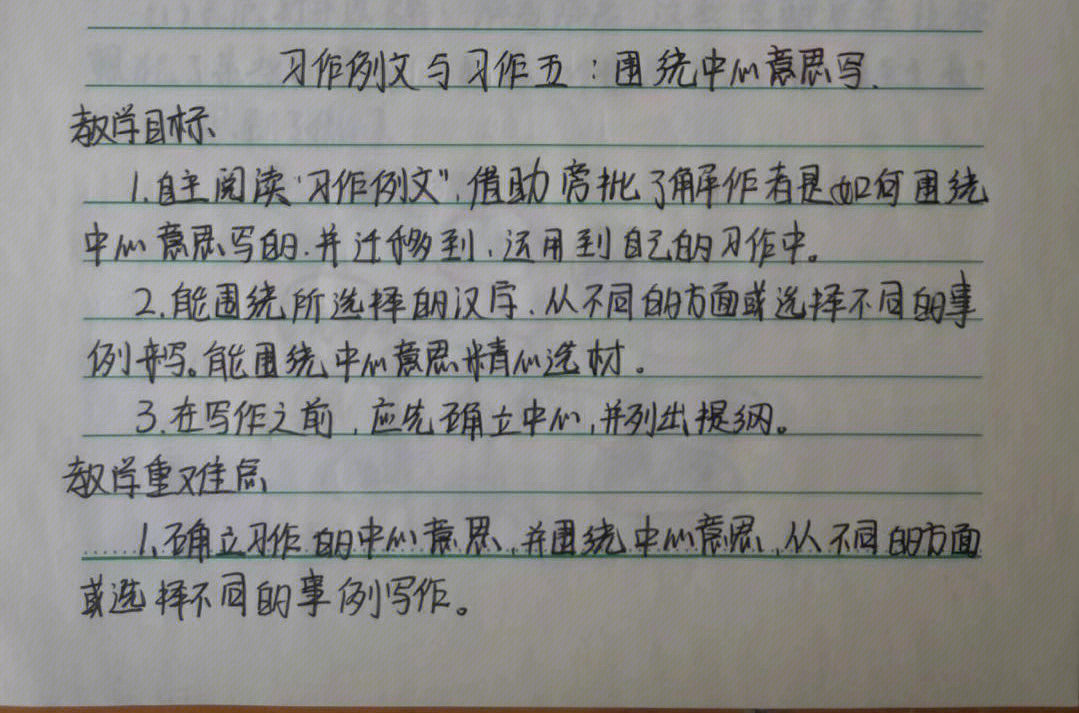 习作例文与习作五:围绕中心意思写.
教学目标
1.自主阅读“习作例文”,借助旁批了解作者是如何围绕
中心意思写的.并迁移到,运用到自己的习作中。
2.能围绕所选择的汉字.从不同的方面或选择不同的事
例来写。能围绕中心意思精心选材。
3.在写作之前,应先确立中心,并列出提纲。
教学重难点
1.确立习作的中心意思,并围绕中心意思,从不同的方面
或选择不同的事例写作。